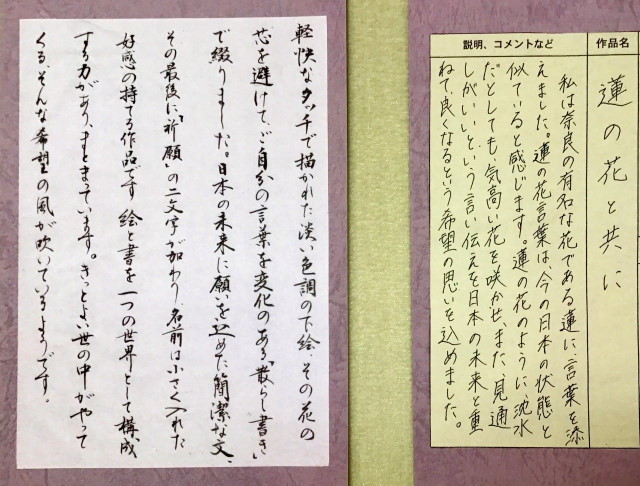 作品名
蓮の花と共に
説明、コメントなど
私は奈良の有名な花である蓮に、言葉を添
えました。蓮の花言葉は、今の日本の状態と
似ていると感じます。蓮の花のように、沈水
だとしても、気高い花を咲かせ、また、見通
しがいいという言い伝えを日本の未来と重
ねて、良くなるという希望の思いを込めました。
軽快なタッチで描かれた淡い色調の下絵、その花の
芯を避けて、ご自分の言葉を変化のある「散らし書き」
で綴りました。日本の未来に願いを込めた簡潔な文、
その最後に、「祈願」の二文字が加わり名前は小さく入れた
好感の持てる作品です 絵と書を一つの世界として構成
する力があり、まとまっています。きっとよい世の中がやって
くる、そんな希望の風が吹いているようです。